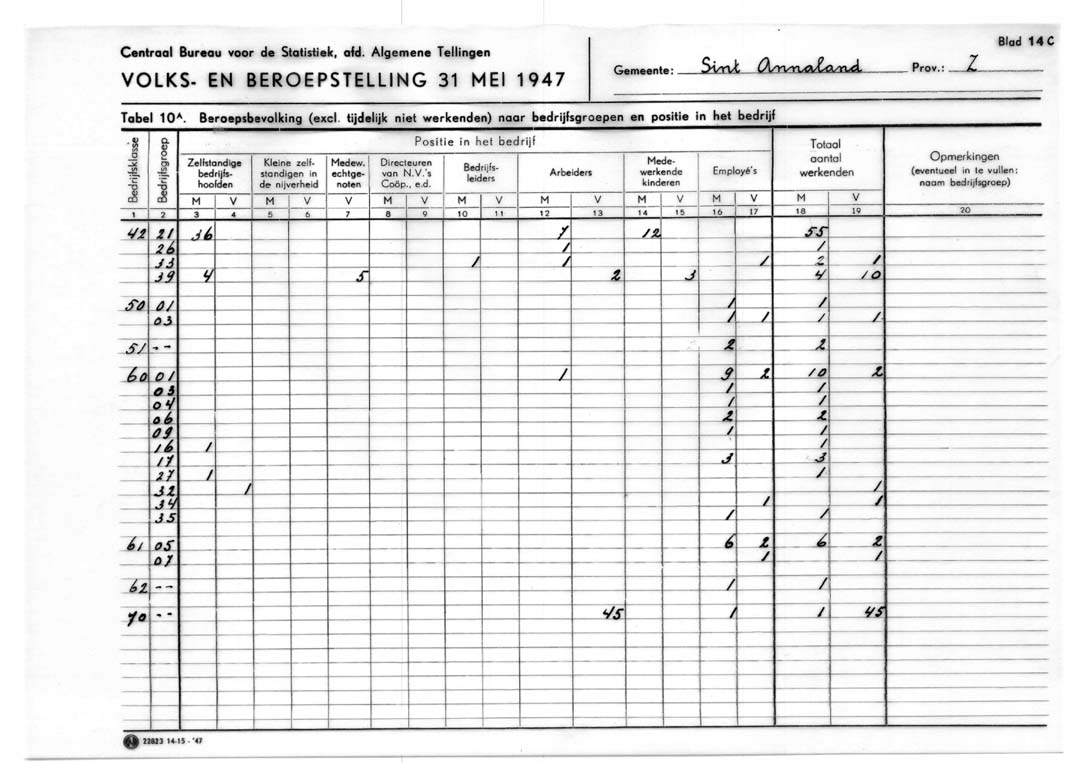 Blad 14 C
Centraal Bureau voor de Statistiek, afd. Algemene Tellingen
VOLKS- EN BEROEPSTELLING 31 MEI 1947
Gemeente: Sint Annaland Prov.: Z
Tabel 10ᴬ. Beroepsbevolking (excl. tijdelijk niet werkenden) naar bedrijfsgroepen en positie in het bedrijf
Bedrijfsklasse
Bedrijfsgroep
Positie in het bedrijf
Zelfstandige
bedrijfs-
hoofden
Kleine zelf-
standigen in
de nijverheid
Medew.
echtge-
noten
Directeuren
van N.V.'s
Coöp., e.d.
Bedrijfs-
leiders
Arbeiders
Mede-
werkende
kinderen
Employé's
Totaal
aantal
werkenden
Opmerkingen
(eventueel in te vullen:
naam bedrijfsgroep)
M V M V V M V M V M V M V M V M V
1 2 3 4 5 6 7 8 9 10 11 12 13 14 15 16 17 18 19 20
42 21 36 7 12 55
26 1 1
33 1 1 1 2 1
39 4 5 2 3 4 10
50 01 1 1
03 1 1 1 1
51 -- 2 2
60 01 1 9 2 10 2
03 1 1
04 1 1
06 2 2
09 1 1
16 1 1
17 3 3
27 1 1
32 1 1
34 1 1
35 1 1
61 05 6 2 6 2
07 1 1
62 -- 1 1
70 -- 45 1 1 45
22823 14-15 - '47